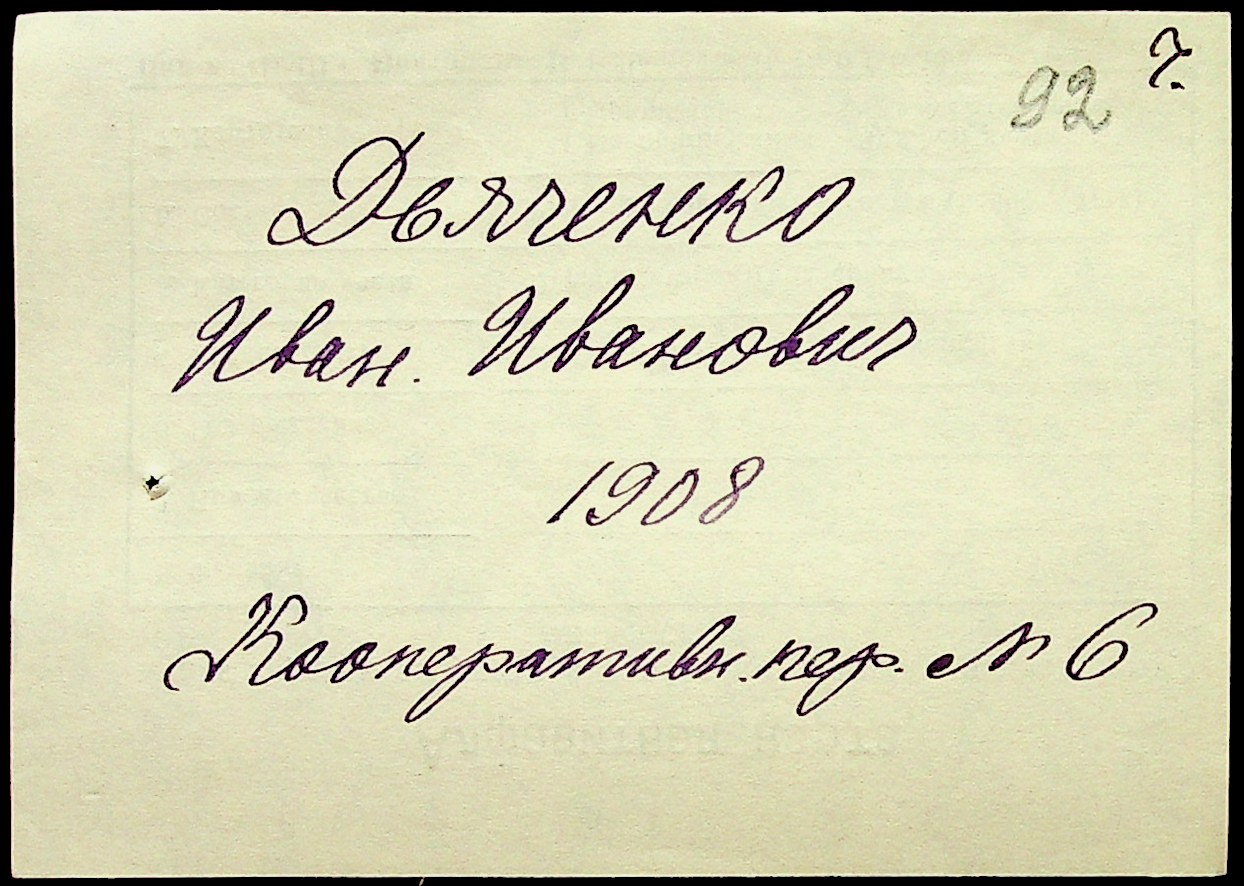 92
Дьяченко
Иван. Иванович
1908
Кооперативн. пер. № 6